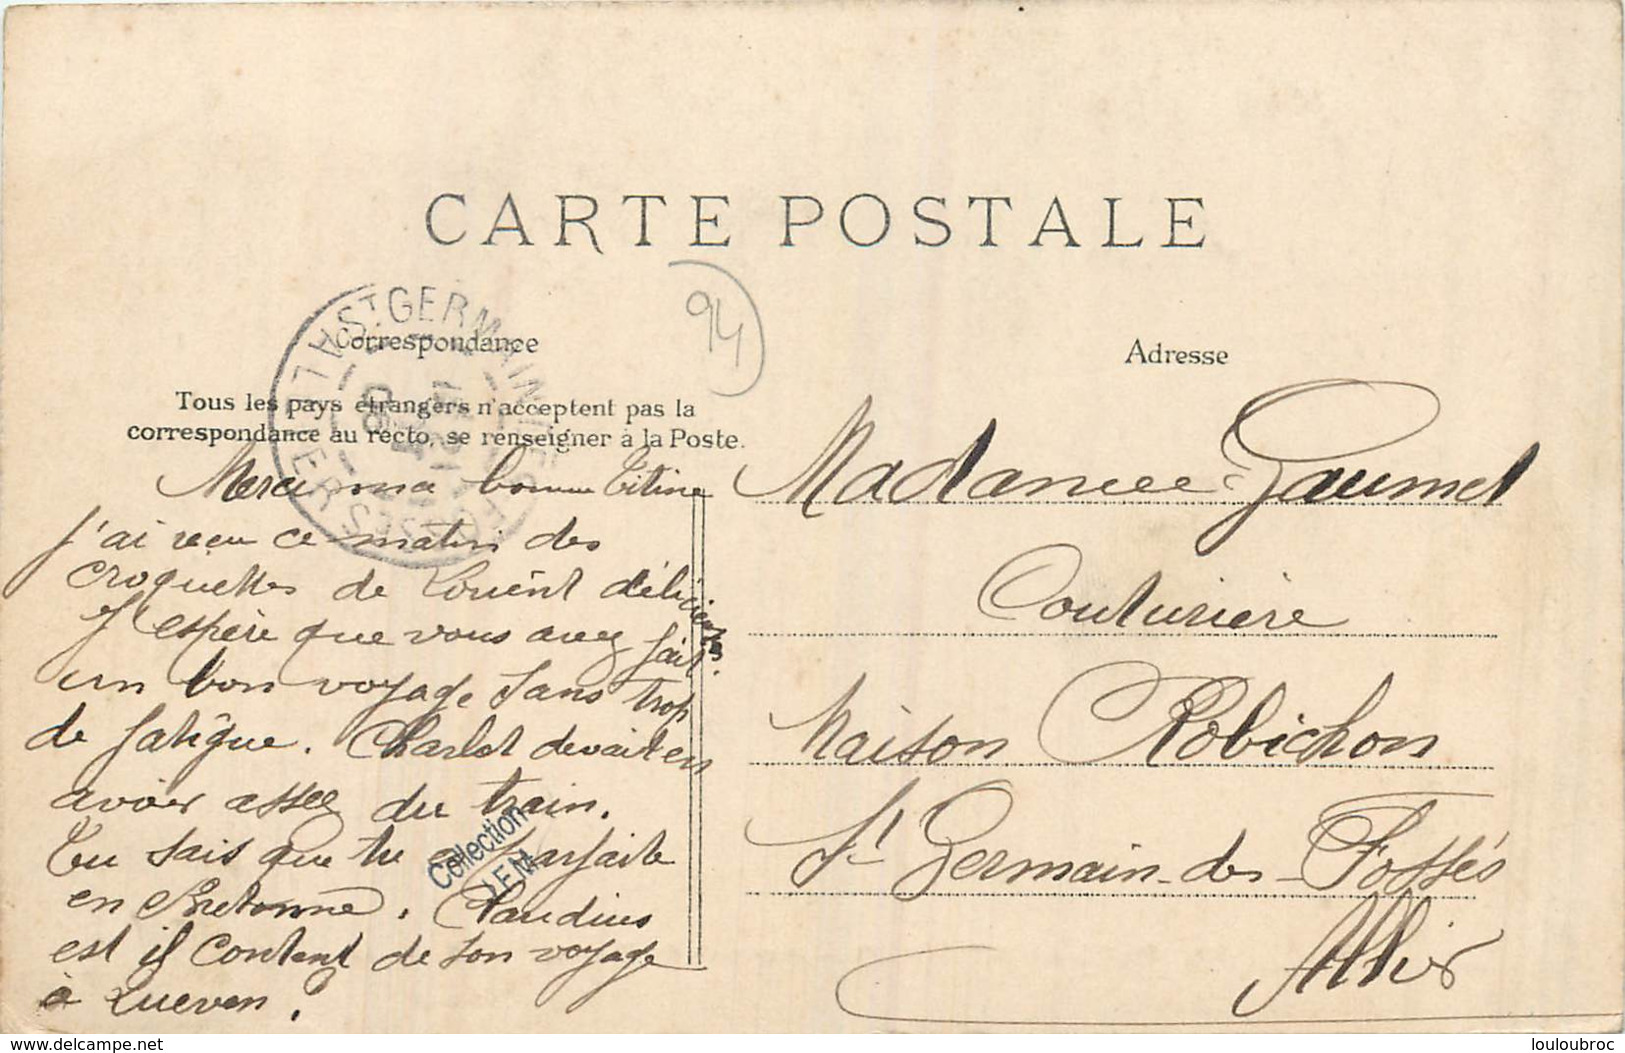 CARTE POSTALE
94
Correspondance
Tous les pays étrangers n'acceptent pas la
correspondance au recto, se renseigner à la Poste.
Merci ma bonne Titine
J'ai reçu ce matin des
croquettes de Lorient délicieuses.
J'espère que vous avez fait
un bon voyage sans trop
de fatigue. Charlot devait en
avoir assez du train.
Tu sais que tu es parfaite
en Bretonne. Claudius
est il content de son voyage
à Queven.
Collection
Adresse
Madame Gaumet
Couturière
Maison Robichon
St Germain-des-Fossés
Allier
ST GERMAIN DES FOSSÉS
ALLIER
www.delcampe.net
louloubroc